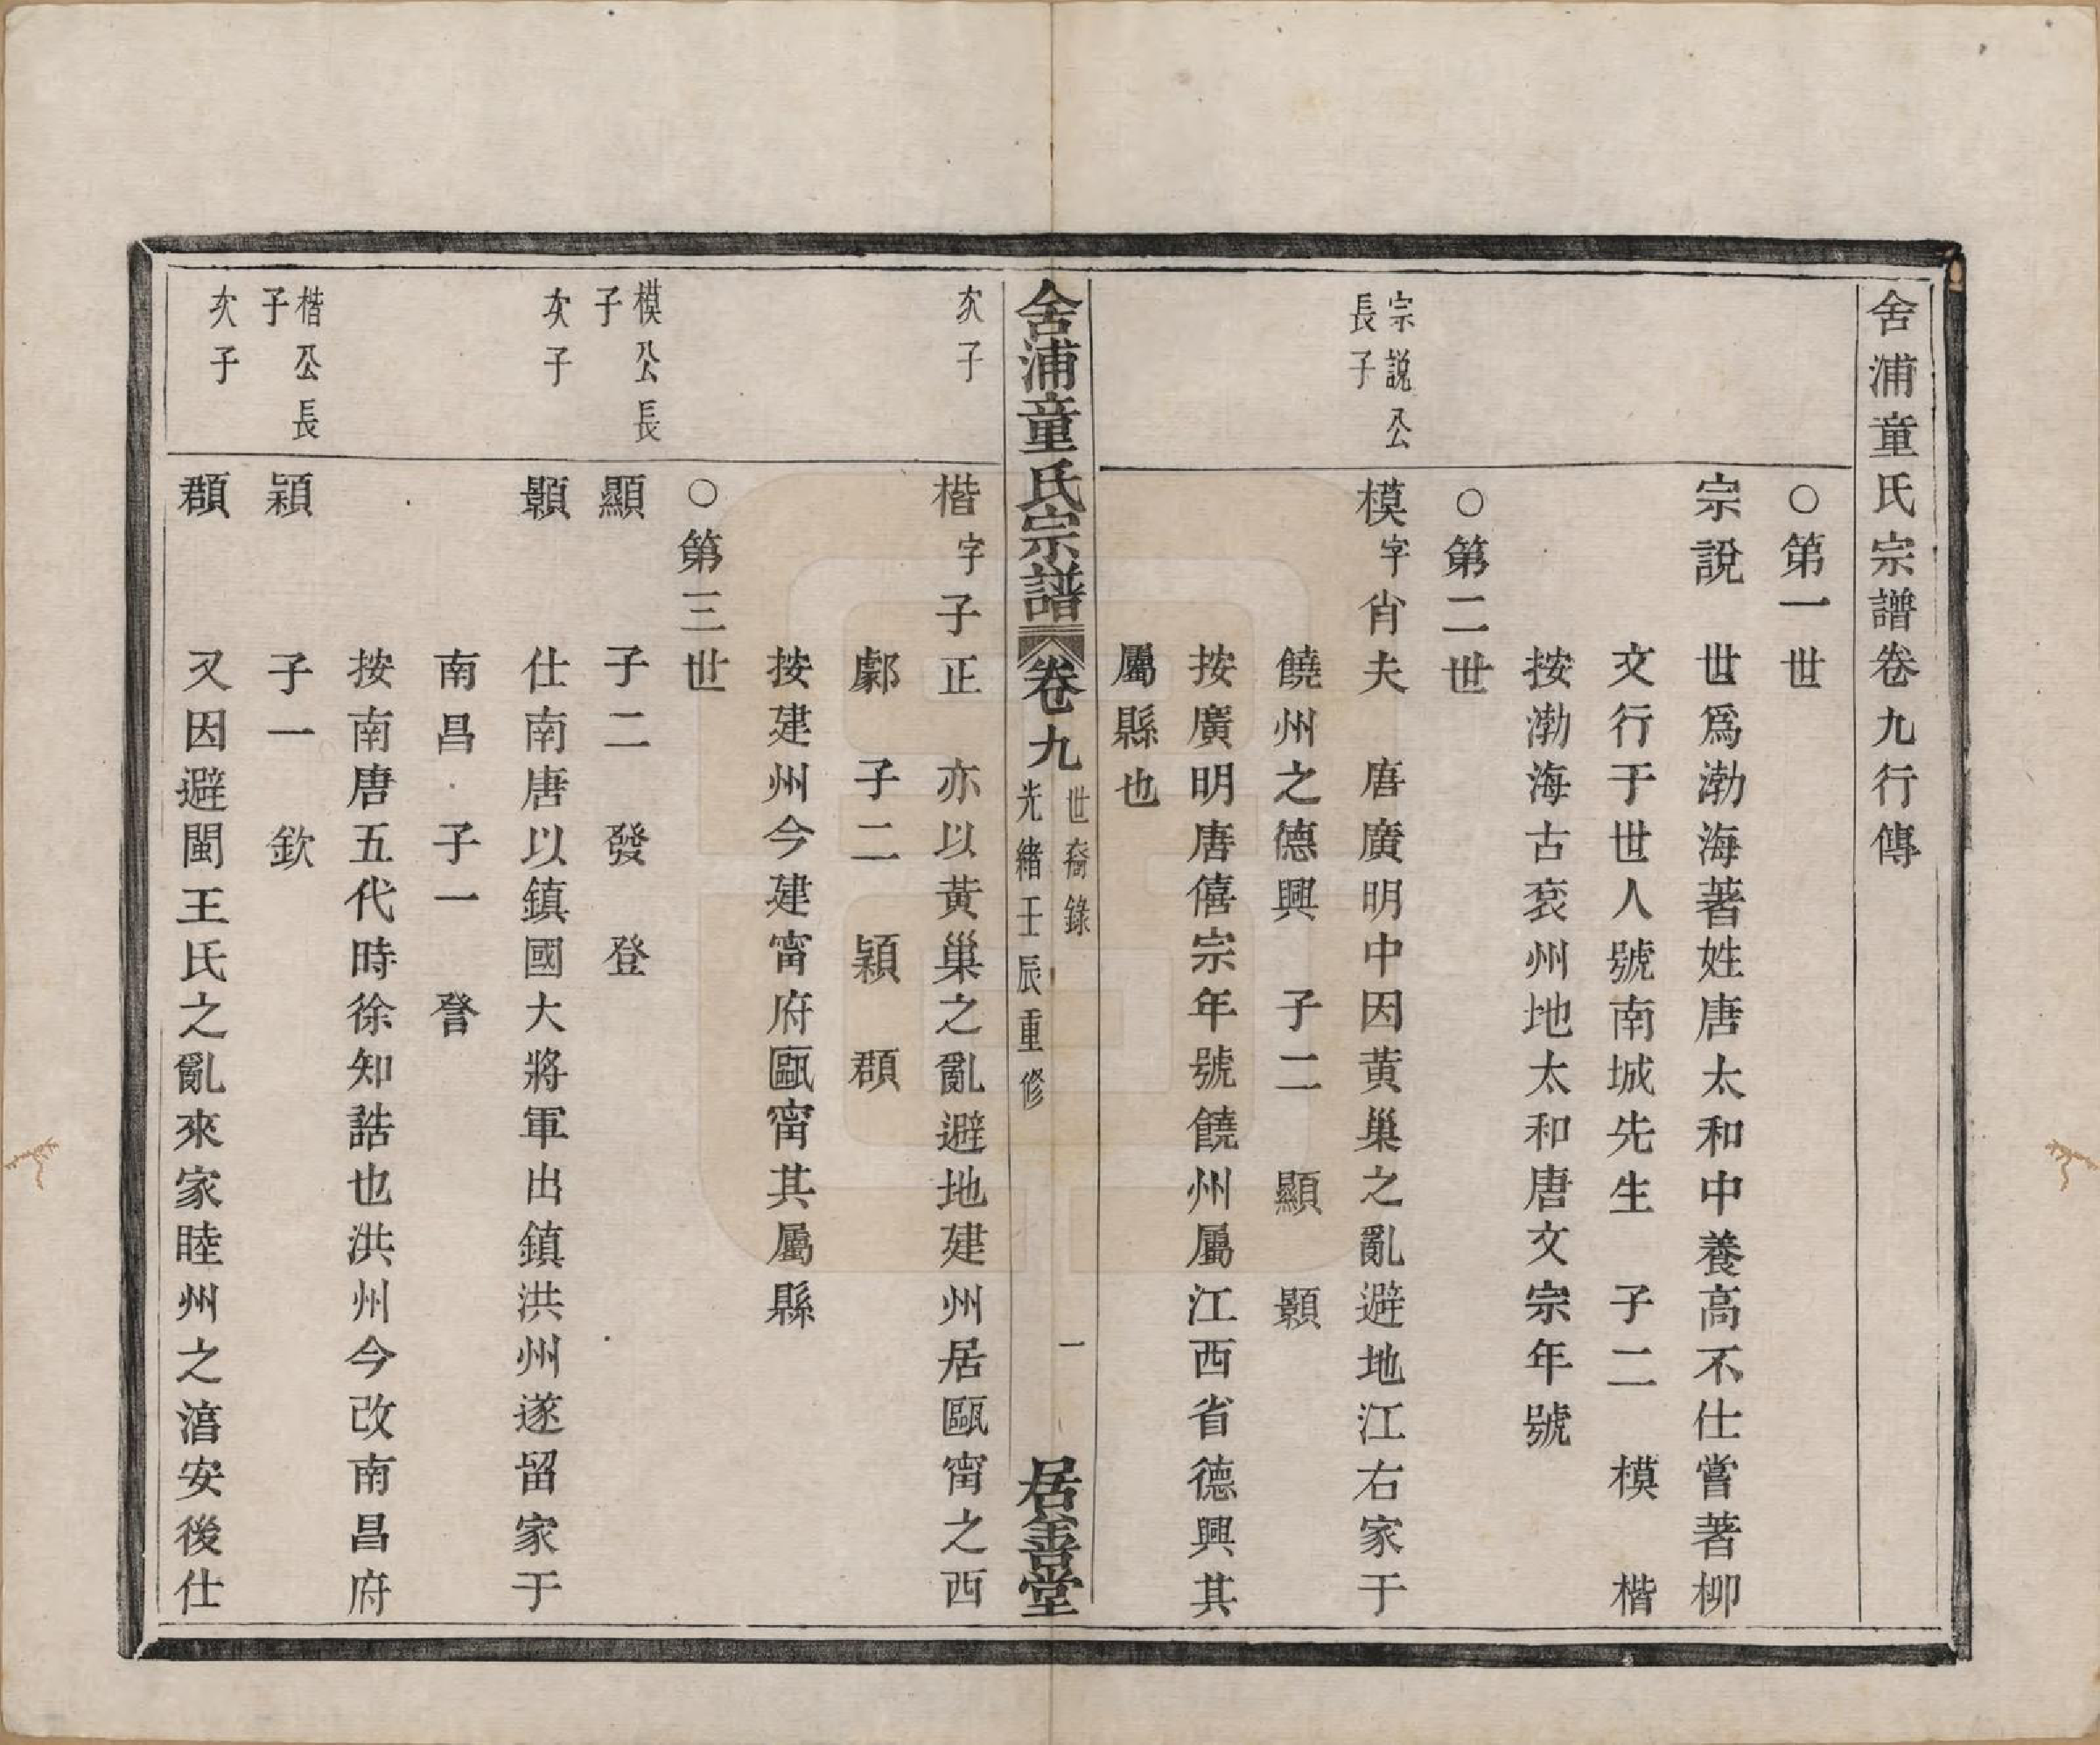 舍浦童氏宗譜卷九行傳
○第一世
宗說 世爲渤海著姓唐太和中養高不仕嘗著柳
文行于世人號南城先生 子二 模 楷
按渤海古袞州地太和唐文宗年號
○第二世
宗說公
長子
模字肖夫 唐廣明中因黃巢之亂避地江右家于
饒州之德興 子二 顯 顥
按廣明唐僖宗年號饒州屬江西省德興其
屬縣也
舍浦童氏宗譜 卷九 世裔錄 光緒壬辰重修 一 居善堂
次子
楷字子正 亦以黃巢之亂避地建州居甌甯之西
鄡 子二 穎 頵
按建州今建甯府甌甯其屬縣
○第三世
模公長
子
顯 子二 發 登
次子
顥 仕南唐以鎮國大將軍出鎮洪州遂留家于
南昌 子一 詧
按南唐五代時徐知誥也洪州今改南昌府
楷公長
子
穎 子一 欽
次子
頵 又因避閩王氏之亂來家睦州之湻安後仕